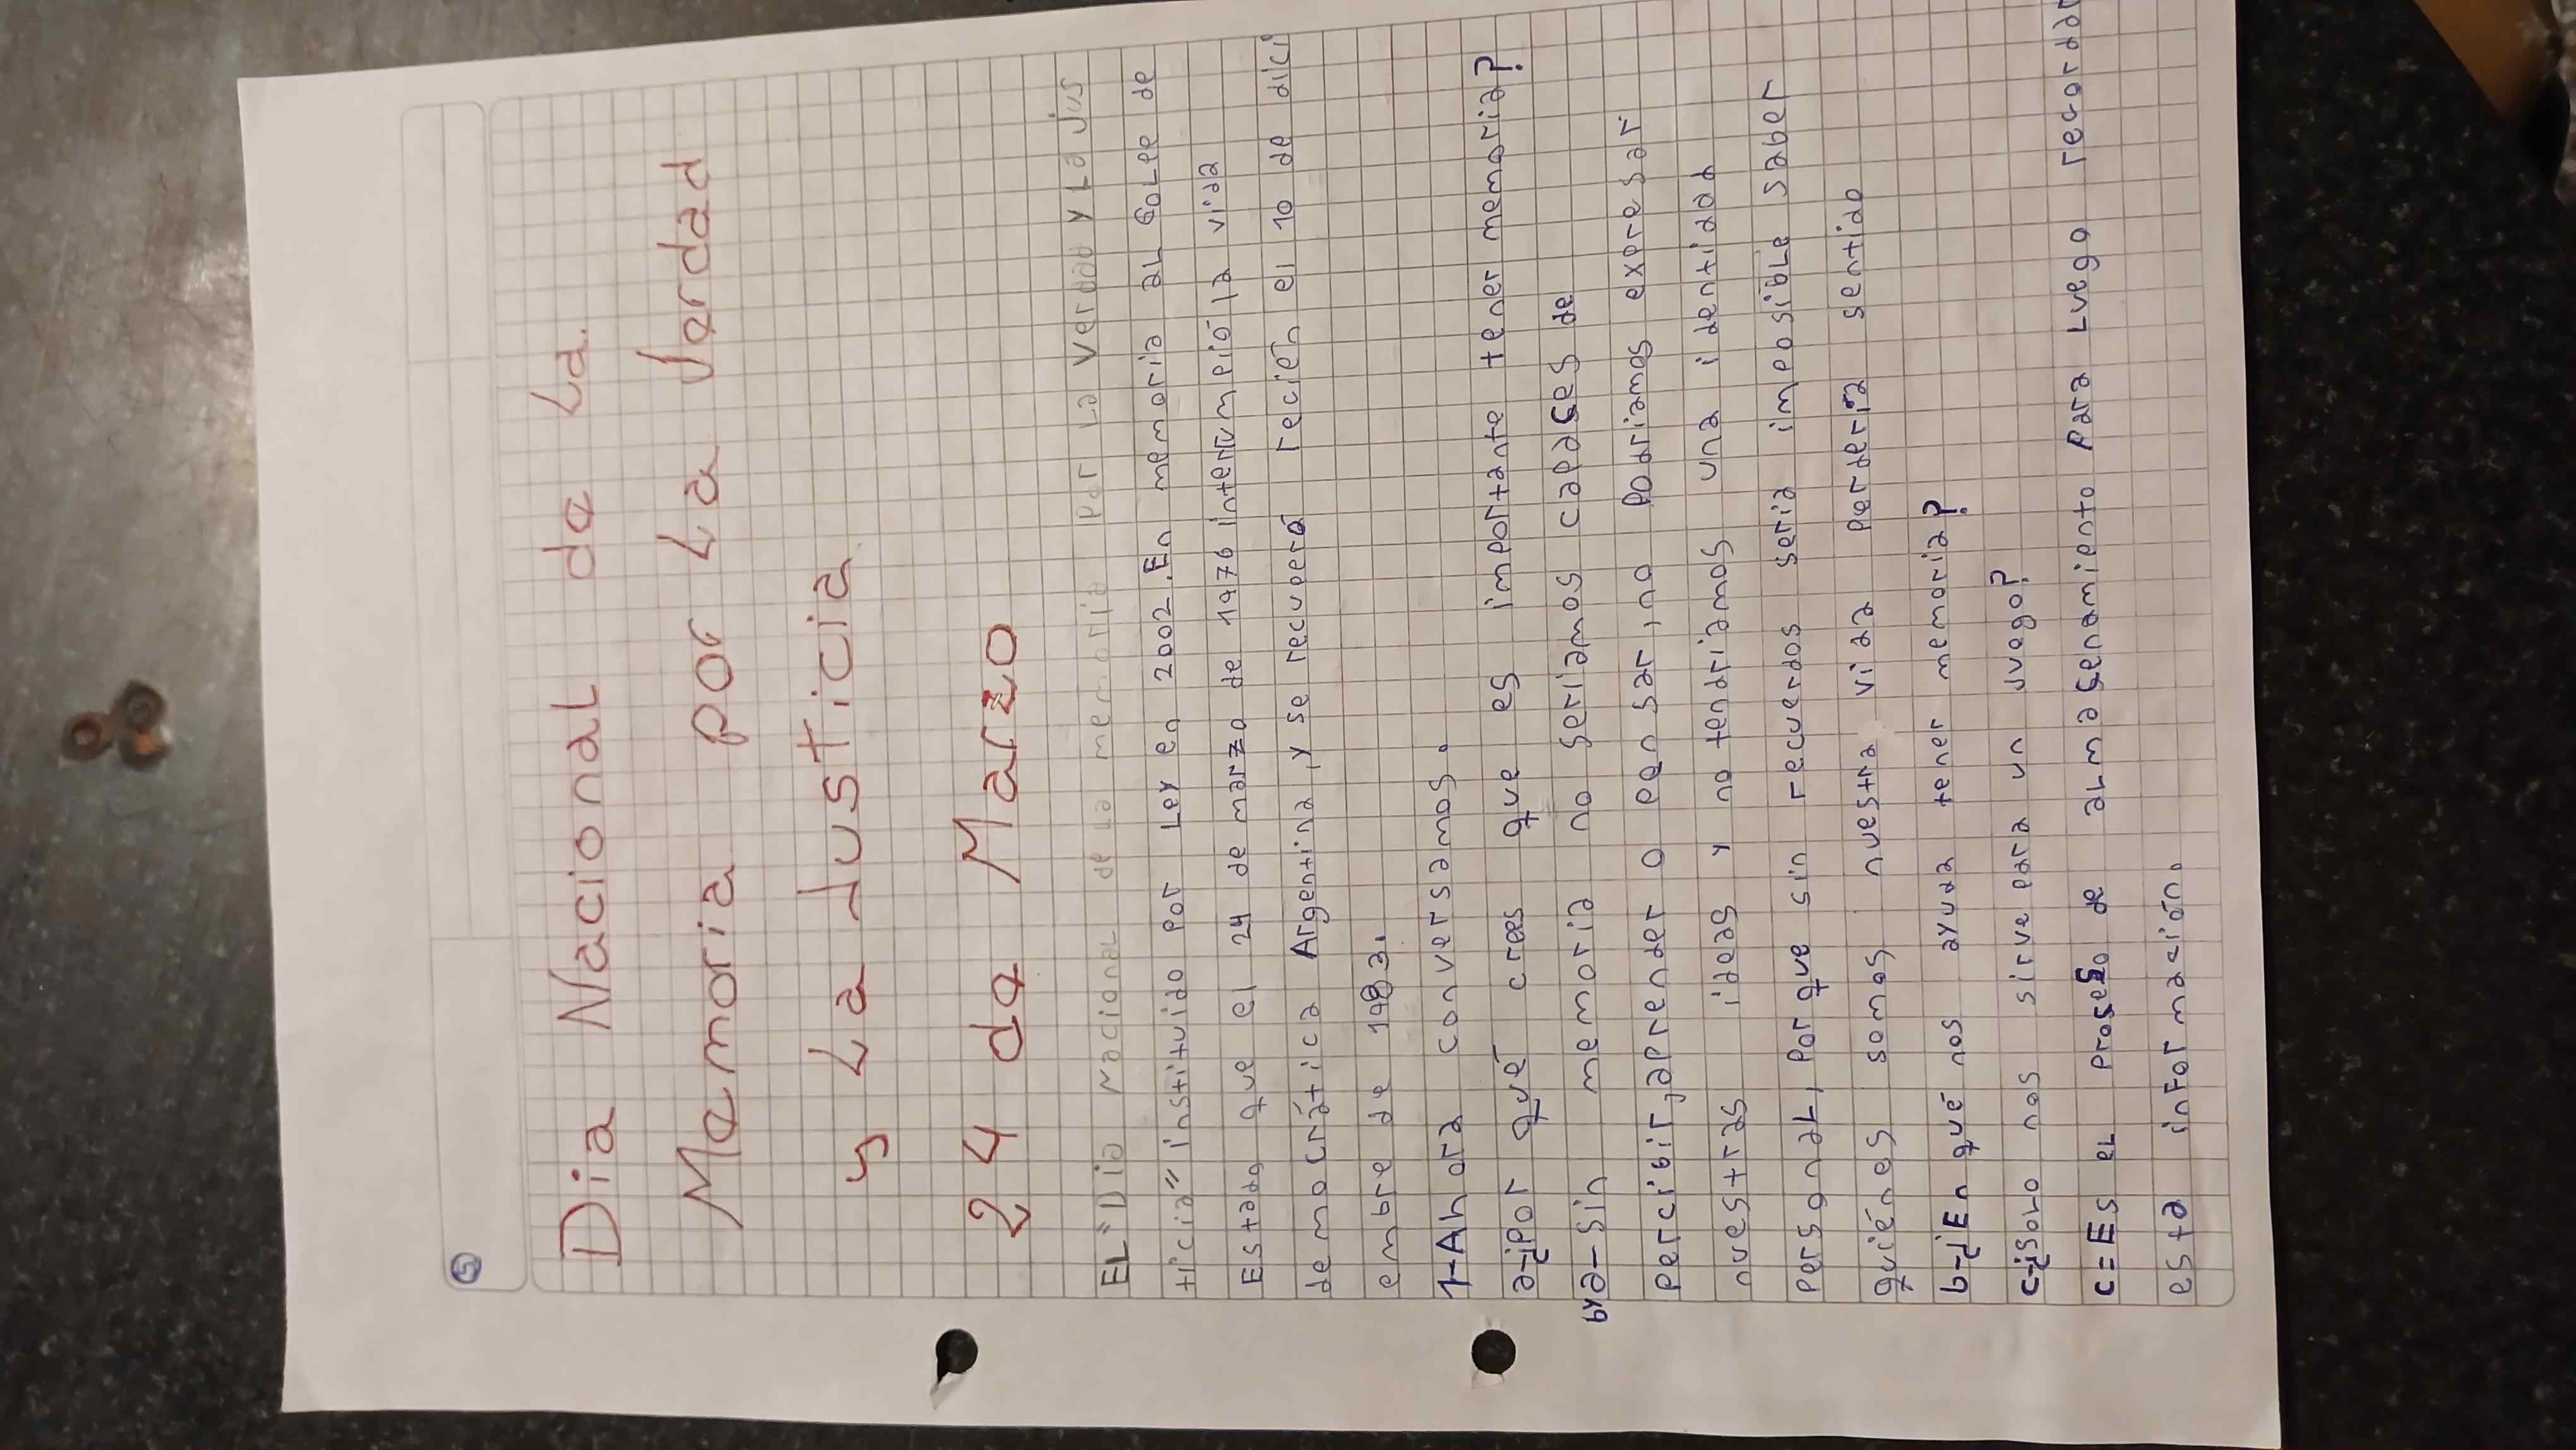 5
Dia Nacional de La
Memoria por La Verdad
y La Justicia
24 de Marzo
EL "Dia Nacional de La memoria por La Verdad y La Jus
ticia" instituido por Ley en 2002. En memoria al Golpe de
Estado que el 24 de marzo de 1976 interrumpió la vida
democrática Argentina, y se recuperó recién el 10 de dici
embre de 1983.
1-Ahora conversamos.
a-¿Por qué crees que es importante tener memoria?
bya-Sin memoria no seriamos capases de
percibir, aprender o pensar, no podriamos expresar
nuestras ideas y no tendriamos una identidad
personal, porque sin recuerdos seria imposible saber
quiénes somos nuestra vida perderia sentido
b-¿En qué nos ayuda tener memoria?
c-¿solo nos sirve para un juego?
c=Es el proseso de almasenamiento para luego recordar
esta información.